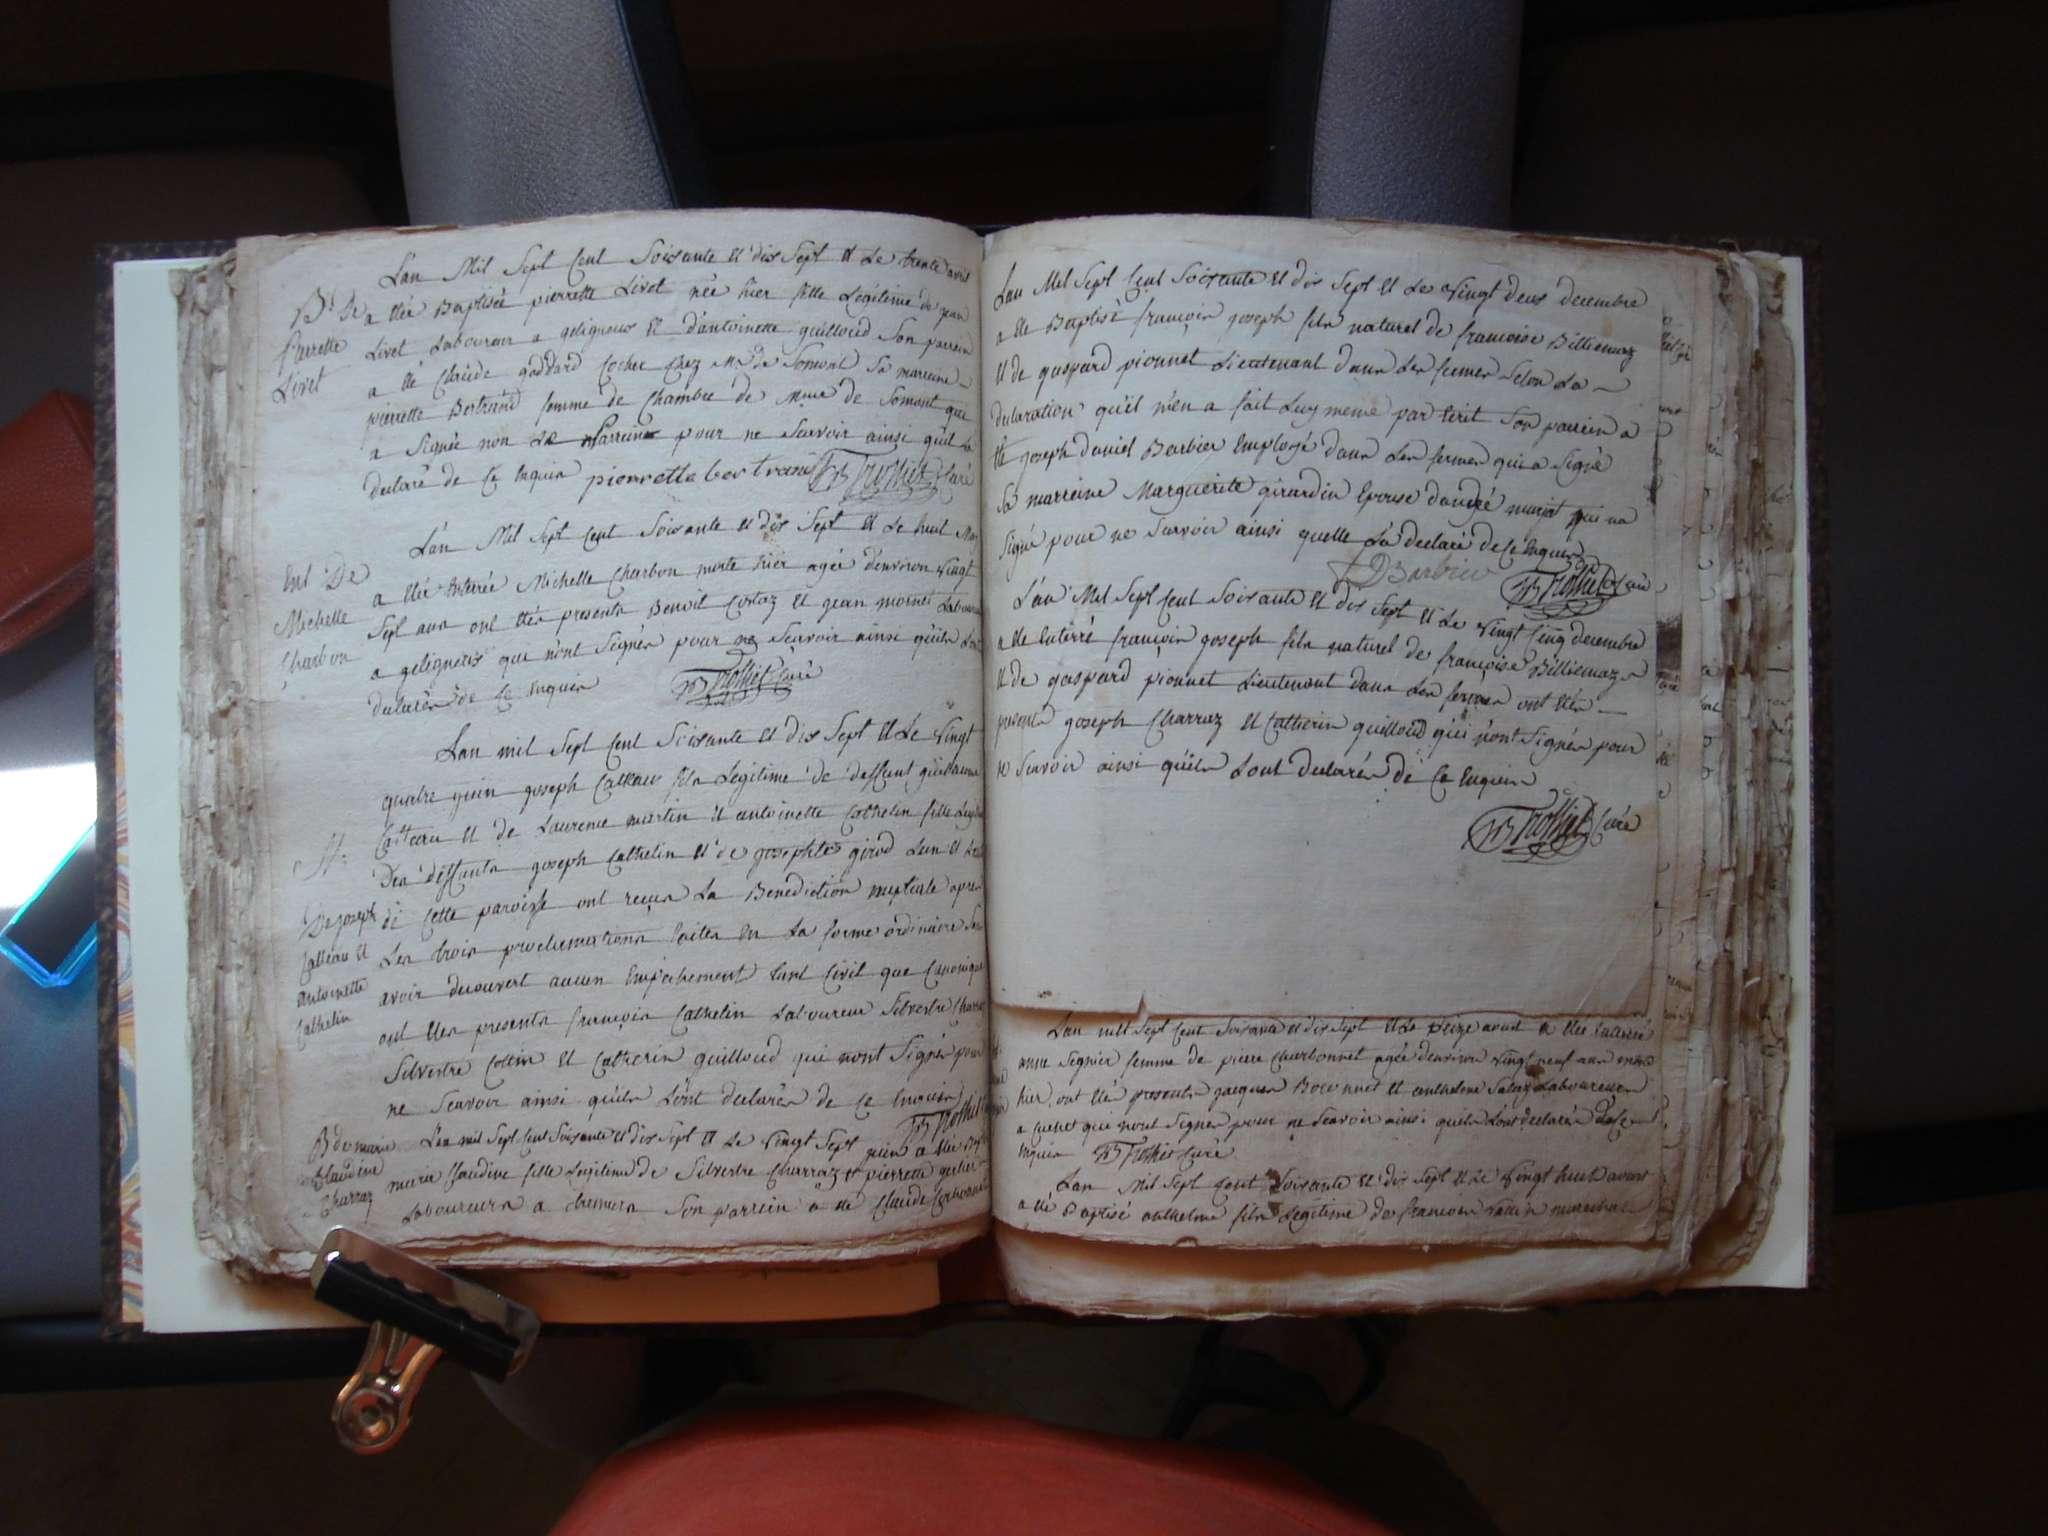 Lan Mil Sept Cent Soixante et dix Sept et Le trente avril
a étée Baptisée pierrette Livet née hier fille Légitime de jean
Livet Laboureur a gelignieux et d'antoinette guilloud Son parrein
a été Claude goddard Cocher Chez Mr de Somont Sa marreine
pierrette Bertrand femme de Chambre de Mme de Somont qui
a Signée non Le Parrein pour ne Scavoir ainsi qu'il La
declaré de Ce Enquis pierrette bertrand Curé
Bt De
Pierrette
Livet
L'an Mil Sept Cent Soixante et dix Sept et Le huit May
a étée Enterrée Michelle Charbon morte hier agée d'environ vingt
Sept ans ont étés presents Benoit Costaz et jean moinet Laboureurs
a gelignieux qui n'ont Signés pour ne Scavoir ainsi qu'ils Lont
declarés de Ce Enquis Curé
Ent De
Michelle
Charbon
Lan mil Sept Cent Soixante et dix Sept et Le Vingt
quatre juin joseph Catteau fils Légitime de deffunt guillaume
Catteau et de Laurence martin et antoinette Cathelin fille Legitime
Des deffunts joseph Cathelin et de josephte girod Lun et Lautre
de Cette paroisse ont reçus La Benediction nuptiale apres
Les trois proclamations faites En La forme ordinaire Sans
avoir decouvert aucun Empechement tant Civil que Canonique
ont étés presents françois Cathelin Laboureur Silvestre Charraz
Silvestre Cottin et Catherin guilloud qui nont Signés pour
ne Scavoir ainsi qu'ils Lont declarés de Ce Enquis
M.
De joseph
Catteau et
antoinette
Cathelin
Lan mil Sept Cent Soixante et dix Sept et Le vingt Sept juin a étée
marie Claudine fille Legitime de Silvestre Charraz et pierrette
Laboureurs a Son parrein a été Claude
B de marie
Claudine
Charraz
Lan Mil Sept Cent Soixante et dix Sept et Le vingt deux decembre
a été Baptisé françois joseph fils naturel de françoise Billiemaz
et de gaspard pionnet Lieutenant dans Les fermes Selon La
declaration qu'il m'en a fait Luy meme par Ecrit Son parrein a
été joseph daniel Barbier Employé dans Les fermes qui a Signé
Sa marreine Marguerite girardin Epouse dandré qui na
Signé pour ne Scavoir ainsi quelle La declaré de Ce Enquise
DBarbier Curé
L'an Mil Sept Cent Soixante et dix Sept et Le vingt Cinq decembre
a été Enterré françois joseph fils naturel de françoise Billiemaz
et de gaspard pionnet Lieutenant dans Les fermes ont étés
presents joseph Charraz et Catherin guilloud qui n'ont Signés pour
ne Scavoir ainsi qu'ils Lont declarés de Ce Enquis
Curé
Lan mil Sept Cent Soixante et dix Sept et Le Seize aoust a étée Enterrée
anne Signier femme de pierre Charbonnet agée d'environ vingt neuf ans morte
hier, ont été presents jacques et anthelme Laboureurs
a cuchet qui nont Signés pour ne Scavoir ainsi quils Lont declarés de Ce
Enquis Curé
Lan Mil Sept Cent Soixante et dix Sept et Le Vingt huit aoust
a été Baptisé anthelme fils Légitime de françois marechal